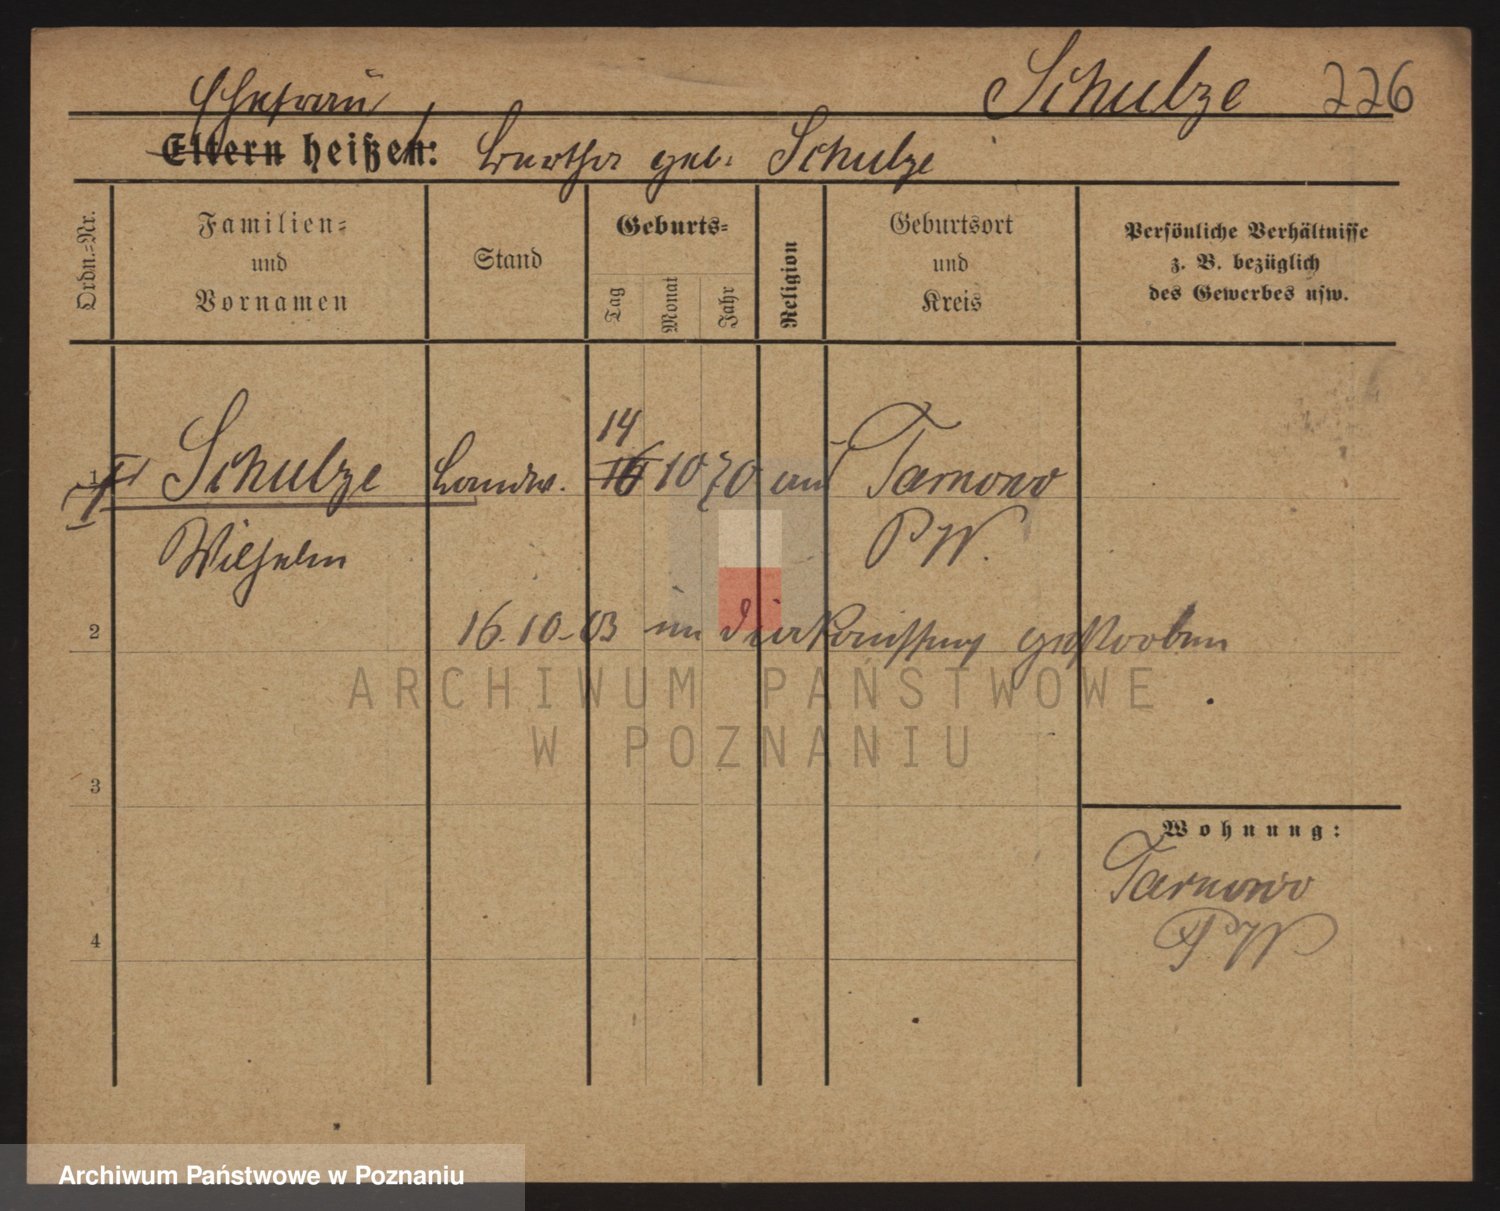 Schulze 226
Ehefrau
Eltern heißen: Bertha geb. Schulze
Ordn.-Nr.
Familien-
und
Vornamen
Stand
Geburts-
Tag
Monat
Jahr
Religion
Geburtsort
und
Kreis
Persönliche Verhältnisse
z. B. bezüglich
des Gewerbes usw.
14
1 Schulze Landw. 16 10 70 Tarnowo
Wilhelm PW.
2
16.10.03 im gestorben
ARCHIWUM PAŃSTWOWE
W POZNANIU
3
Wohnung:
Tarnowo
PW
4
Archiwum Państwowe w Poznaniu